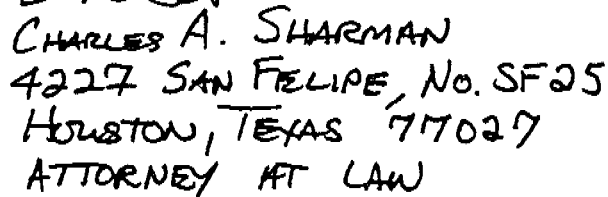 CHARLES A. SHARMAN
4227 SAN FELIPE, NO. SF25
HOUSTON, TEXAS 77027
ATTORNEY AT LAW